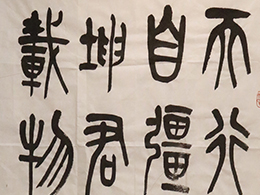 天行
自彊
坤君
載物